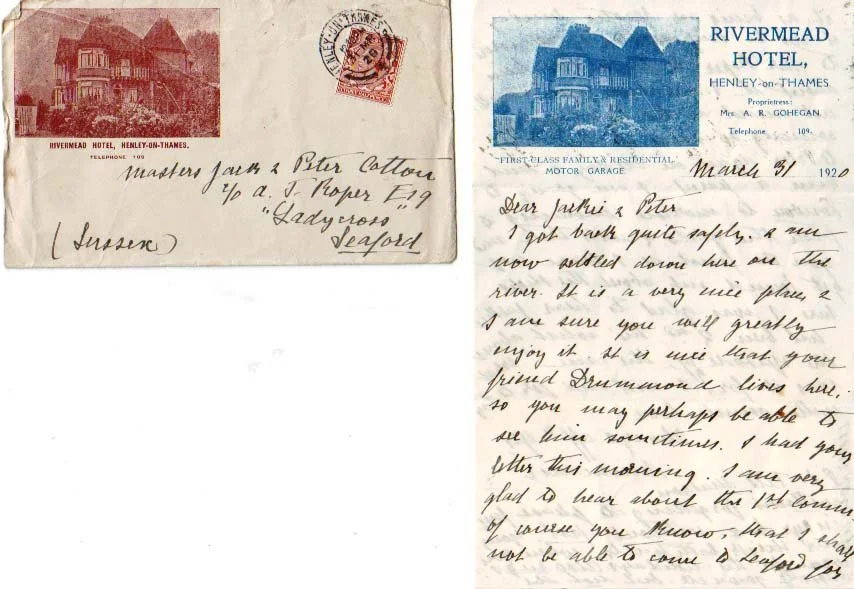 RIVERMEAD HOTEL, HENLEY-ON-THAMES.
TELEPHONE 109
HENLEY-ON-THAMES
20
Masters Jack & Peter Cotton
c/o A. J. Roper Esq
"Ladycross"
Seaford
(Sussex)
RIVERMEAD
HOTEL,
HENLEY-on-THAMES
Proprietress:
Mrs A. R. GOHEGAN
Telephone 109.
FIRST CLASS FAMILY & RESIDENTIAL
MOTOR GARAGE
March 31 1920
Dear Jackie & Peter
I got back quite safely. & am
now settled down here on the
river. It is a very nice place &
I am sure you will greatly
enjoy it. It is nice that your
friend Drummond lives here.
so you may perhaps be able to
see him sometimes. I had your
letter this morning. I am very
glad to hear about the 1st Commn.
of course you know, that I shall
not be able to come to Seaford for